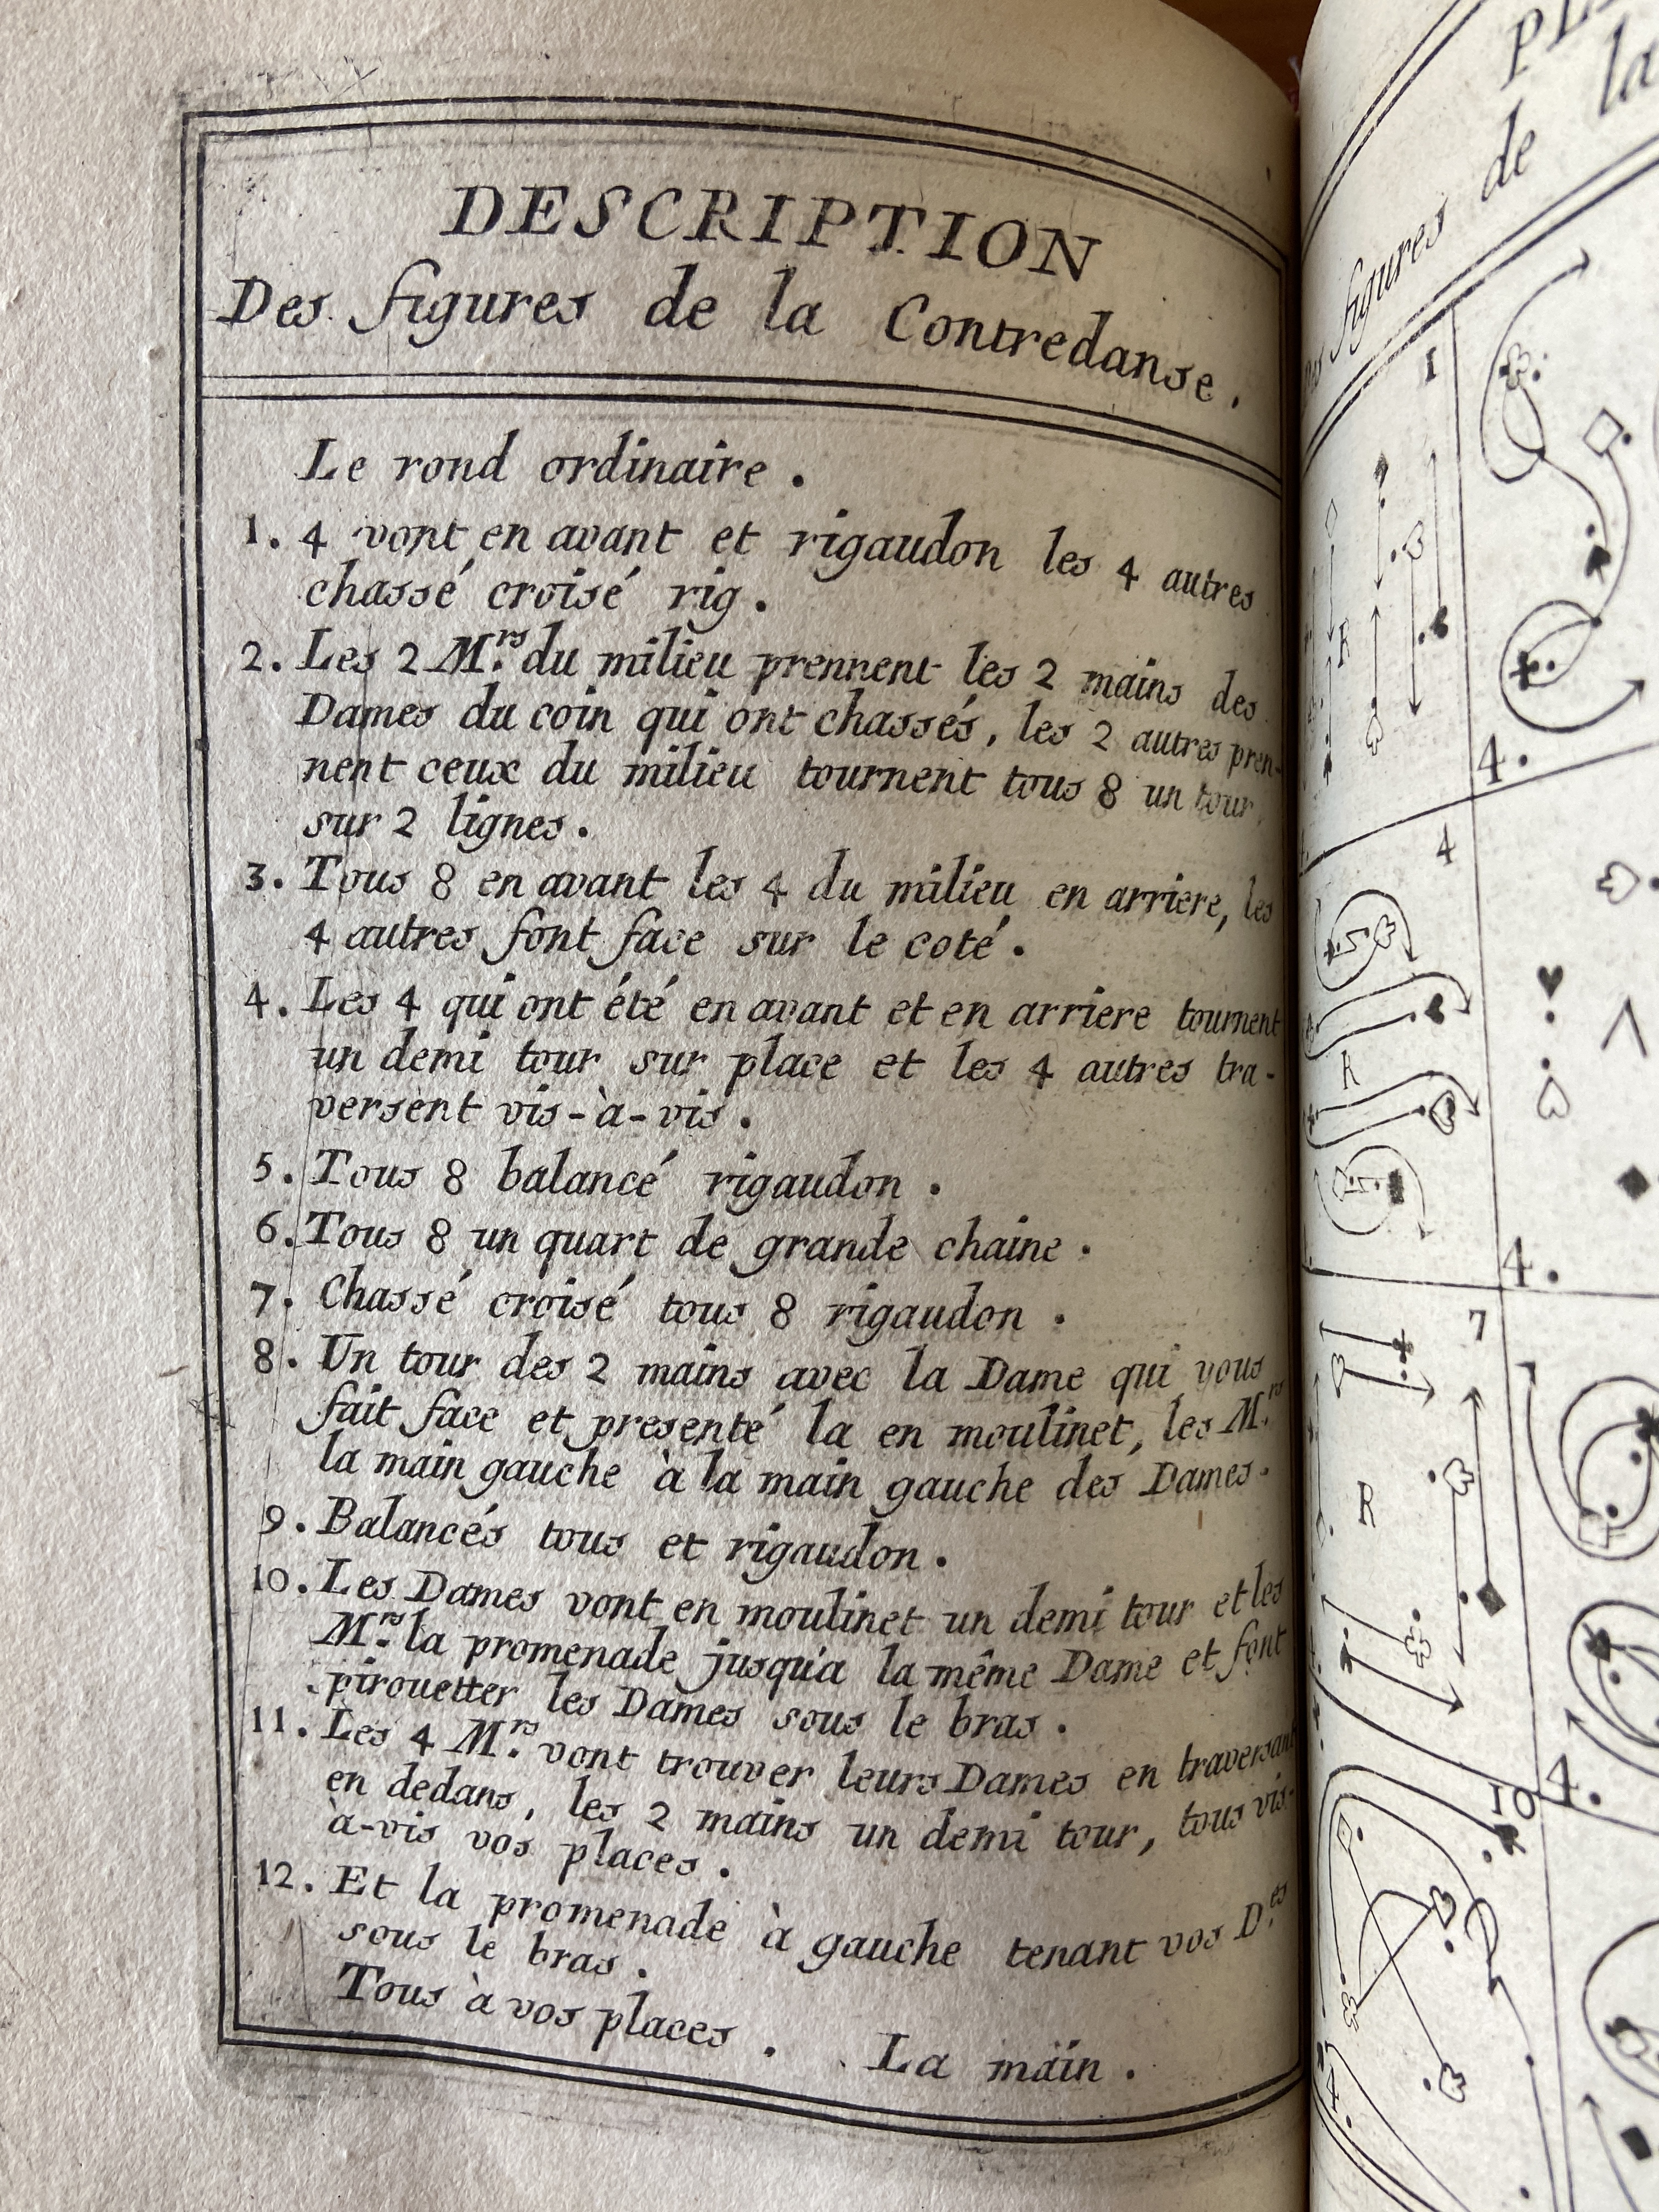 DESCRIPTION
Des figures de la Contredanse.
Le rond ordinaire.
1. 4 vont en avant et rigaudon les 4 autres
chassé croisé rig.
2. Les 2 M.rs du milieu prennent les 2 mains des
Dames du coin qui ont chassés, les 2 autres pren-
nent ceux du milieu tournent tous 8 un tour
sur 2 lignes.
3. Tous 8 en avant les 4 du milieu en arriere, les
4 autres font face sur le coté.
4. Les 4 qui ont été en avant et en arriere tournent
un demi tour sur place et les 4 autres tra-
versent vis-à-vis.
5. Tous 8 balancé rigaudon.
6. Tous 8 un quart de grande chaine.
7. Chassé croisé tous 8 rigaudon.
8. Un tour des 2 mains avec la Dame qui vous
fait face et presenté la en moulinet, les M.rs
la main gauche à la main gauche des Dames.
9. Balancés tous et rigaudon.
10. Les Dames vont en moulinet un demi tour et les
M.rs la promenade jusqu'a la même Dame et font
pirouetter les Dames sous le bras.
11. Les 4 M.rs vont trouver leurs Dames en traversant
en dedans, les 2 mains un demi tour, tous vis-
à-vis vos places.
12. Et la promenade à gauche tenant vos D.es
sous le bras.
Tous à vos places.
La main.
de la
figures
1
R
4.
4
R
4.
7
R
4.
10
4.